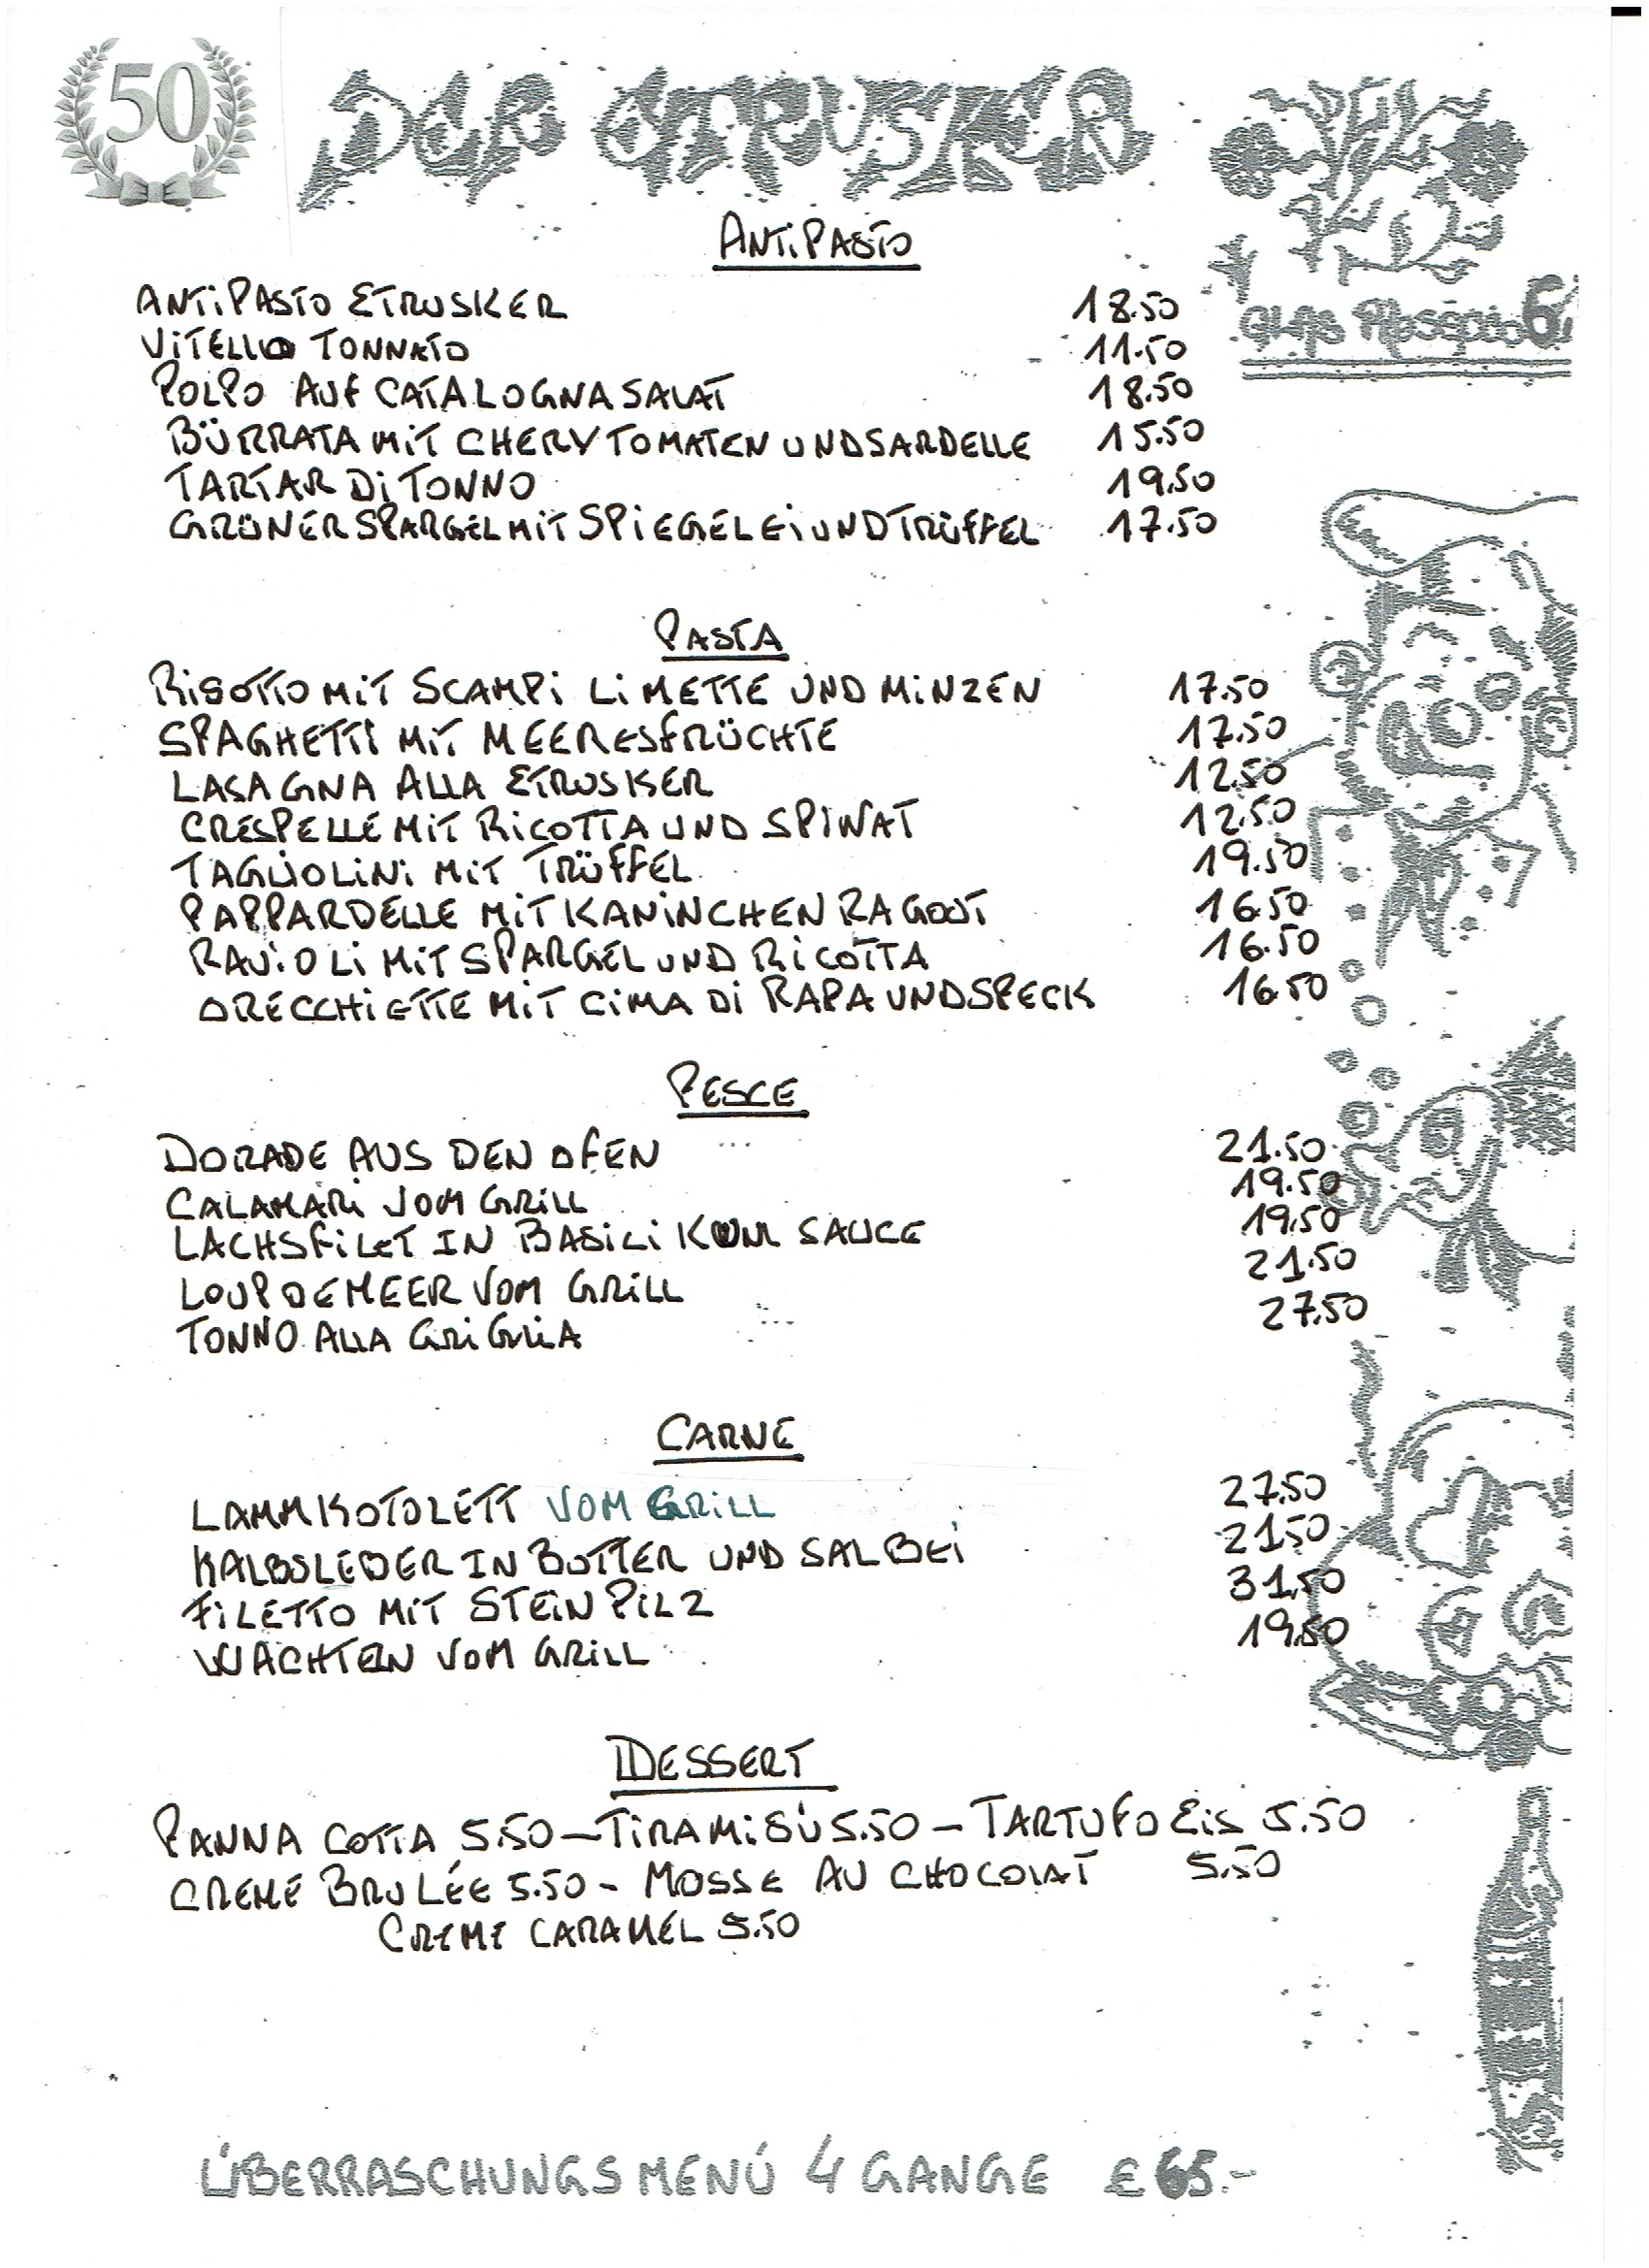 50
DER ETRUSKER
ANTIPASTO
ANTIPASTO ETRUSKER 18.50
VITELLO TONNATO 11.50
POLPO AUF CATALOGNA SALAT 18.50
BÜRRATA MIT CHERY TOMATEN UND SARDELLE 15.50
TARTAR DI TONNO 19.50
GRÜNER SPARGEL MIT SPIEGELEI UND TRÜFFEL 17.50
GLAS PROSECCO 6.
PASTA
RISOTTO MIT SCAMPI LIMETTE UND MINZEN 17.50
SPAGHETTI MIT MEERESFRÜCHTE 17.50
LASAGNA ALLA ETRUSKER 12.50
CRESPELLE MIT RICOTTA UND SPINAT 12.50
TAGLIOLINI MIT TRÜFFEL 19.50
PAPPARDELLE MIT KANINCHEN RAGOUT 16.50
RAVIOLI MIT SPARGEL UND RICOTTA 16.50
ORECCHIETTE MIT CIMA DI RAPA UND SPECK 16.50
PESCE
DORADE AUS DEN OFEN 21.50
CALAMARI VOM GRILL 19.50
LACHSFILET IN BASILIKUM SAUCE 19.50
LOUP DE MEER VOM GRILL 21.50
TONNO ALLA GRIGLIA 27.50
CARNE
LAMMKOTOLETT VOM GRILL 27.50
KALBSLEBER IN BUTTER UND SALBEI 21.50
FILETTO MIT STEINPILZ 31.50
WACHTELN VOM GRILL 19.50
DESSERT
PANNA COTTA 5.50 – TIRAMISÙ 5.50 – TARTUFO EIS 5.50
CREME BRULÉE 5.50 – MOSSE AU CHOCOLAT 5.50
CREME CARAMEL 5.50
ÜBERRASCHUNGSMENÜ 4 GANGE € 65.-